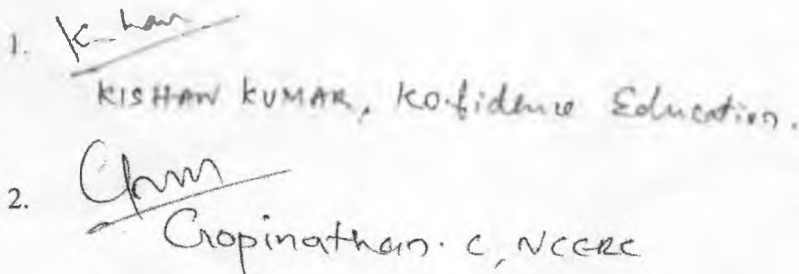 1.
KISHAN KUMAR, Konfidence Education.
2.
Gopinathan. C, NCERC